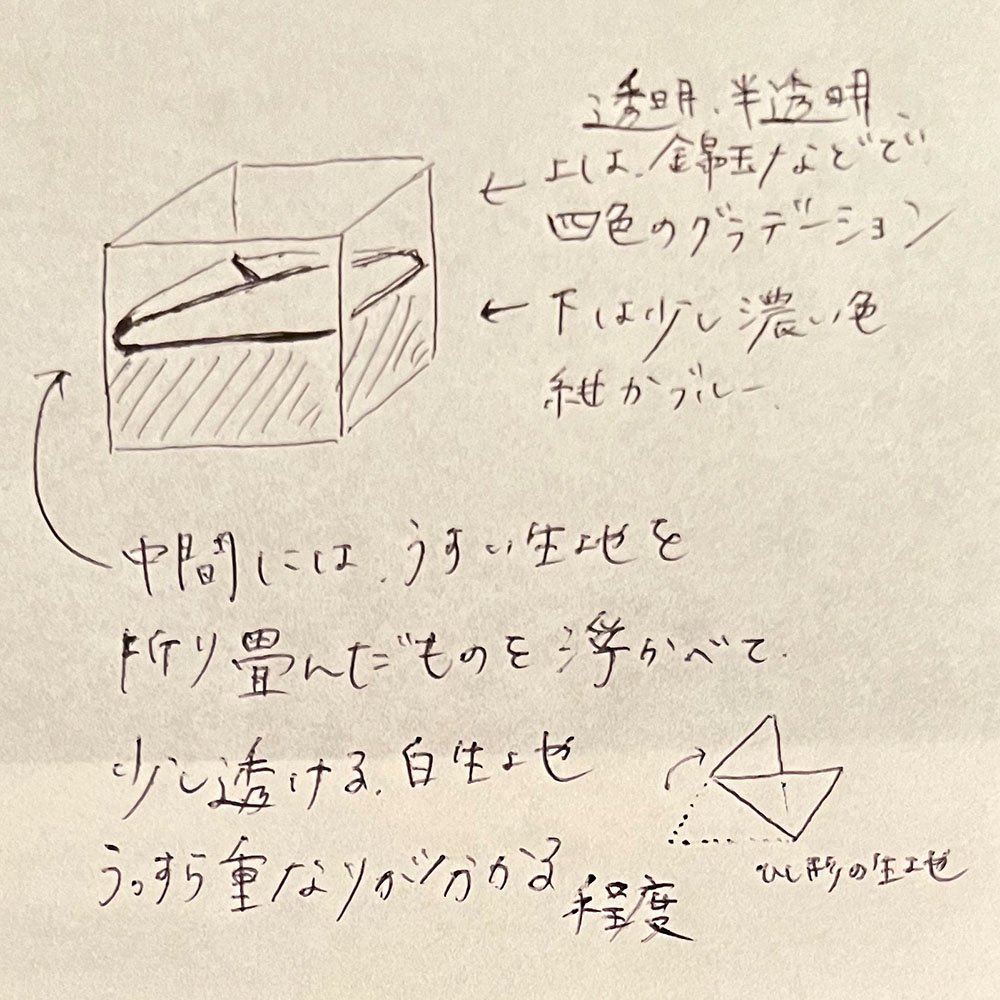 透明、半透明
← 上は、錦玉などで
四色のグラデーション
← 下は少し濃い色
紺かブルー
中間には、うすい生地を
折り畳んだものを浮かべて
少し透ける、白生地
うっすら重なりが分かる
程度
ひし形の生地